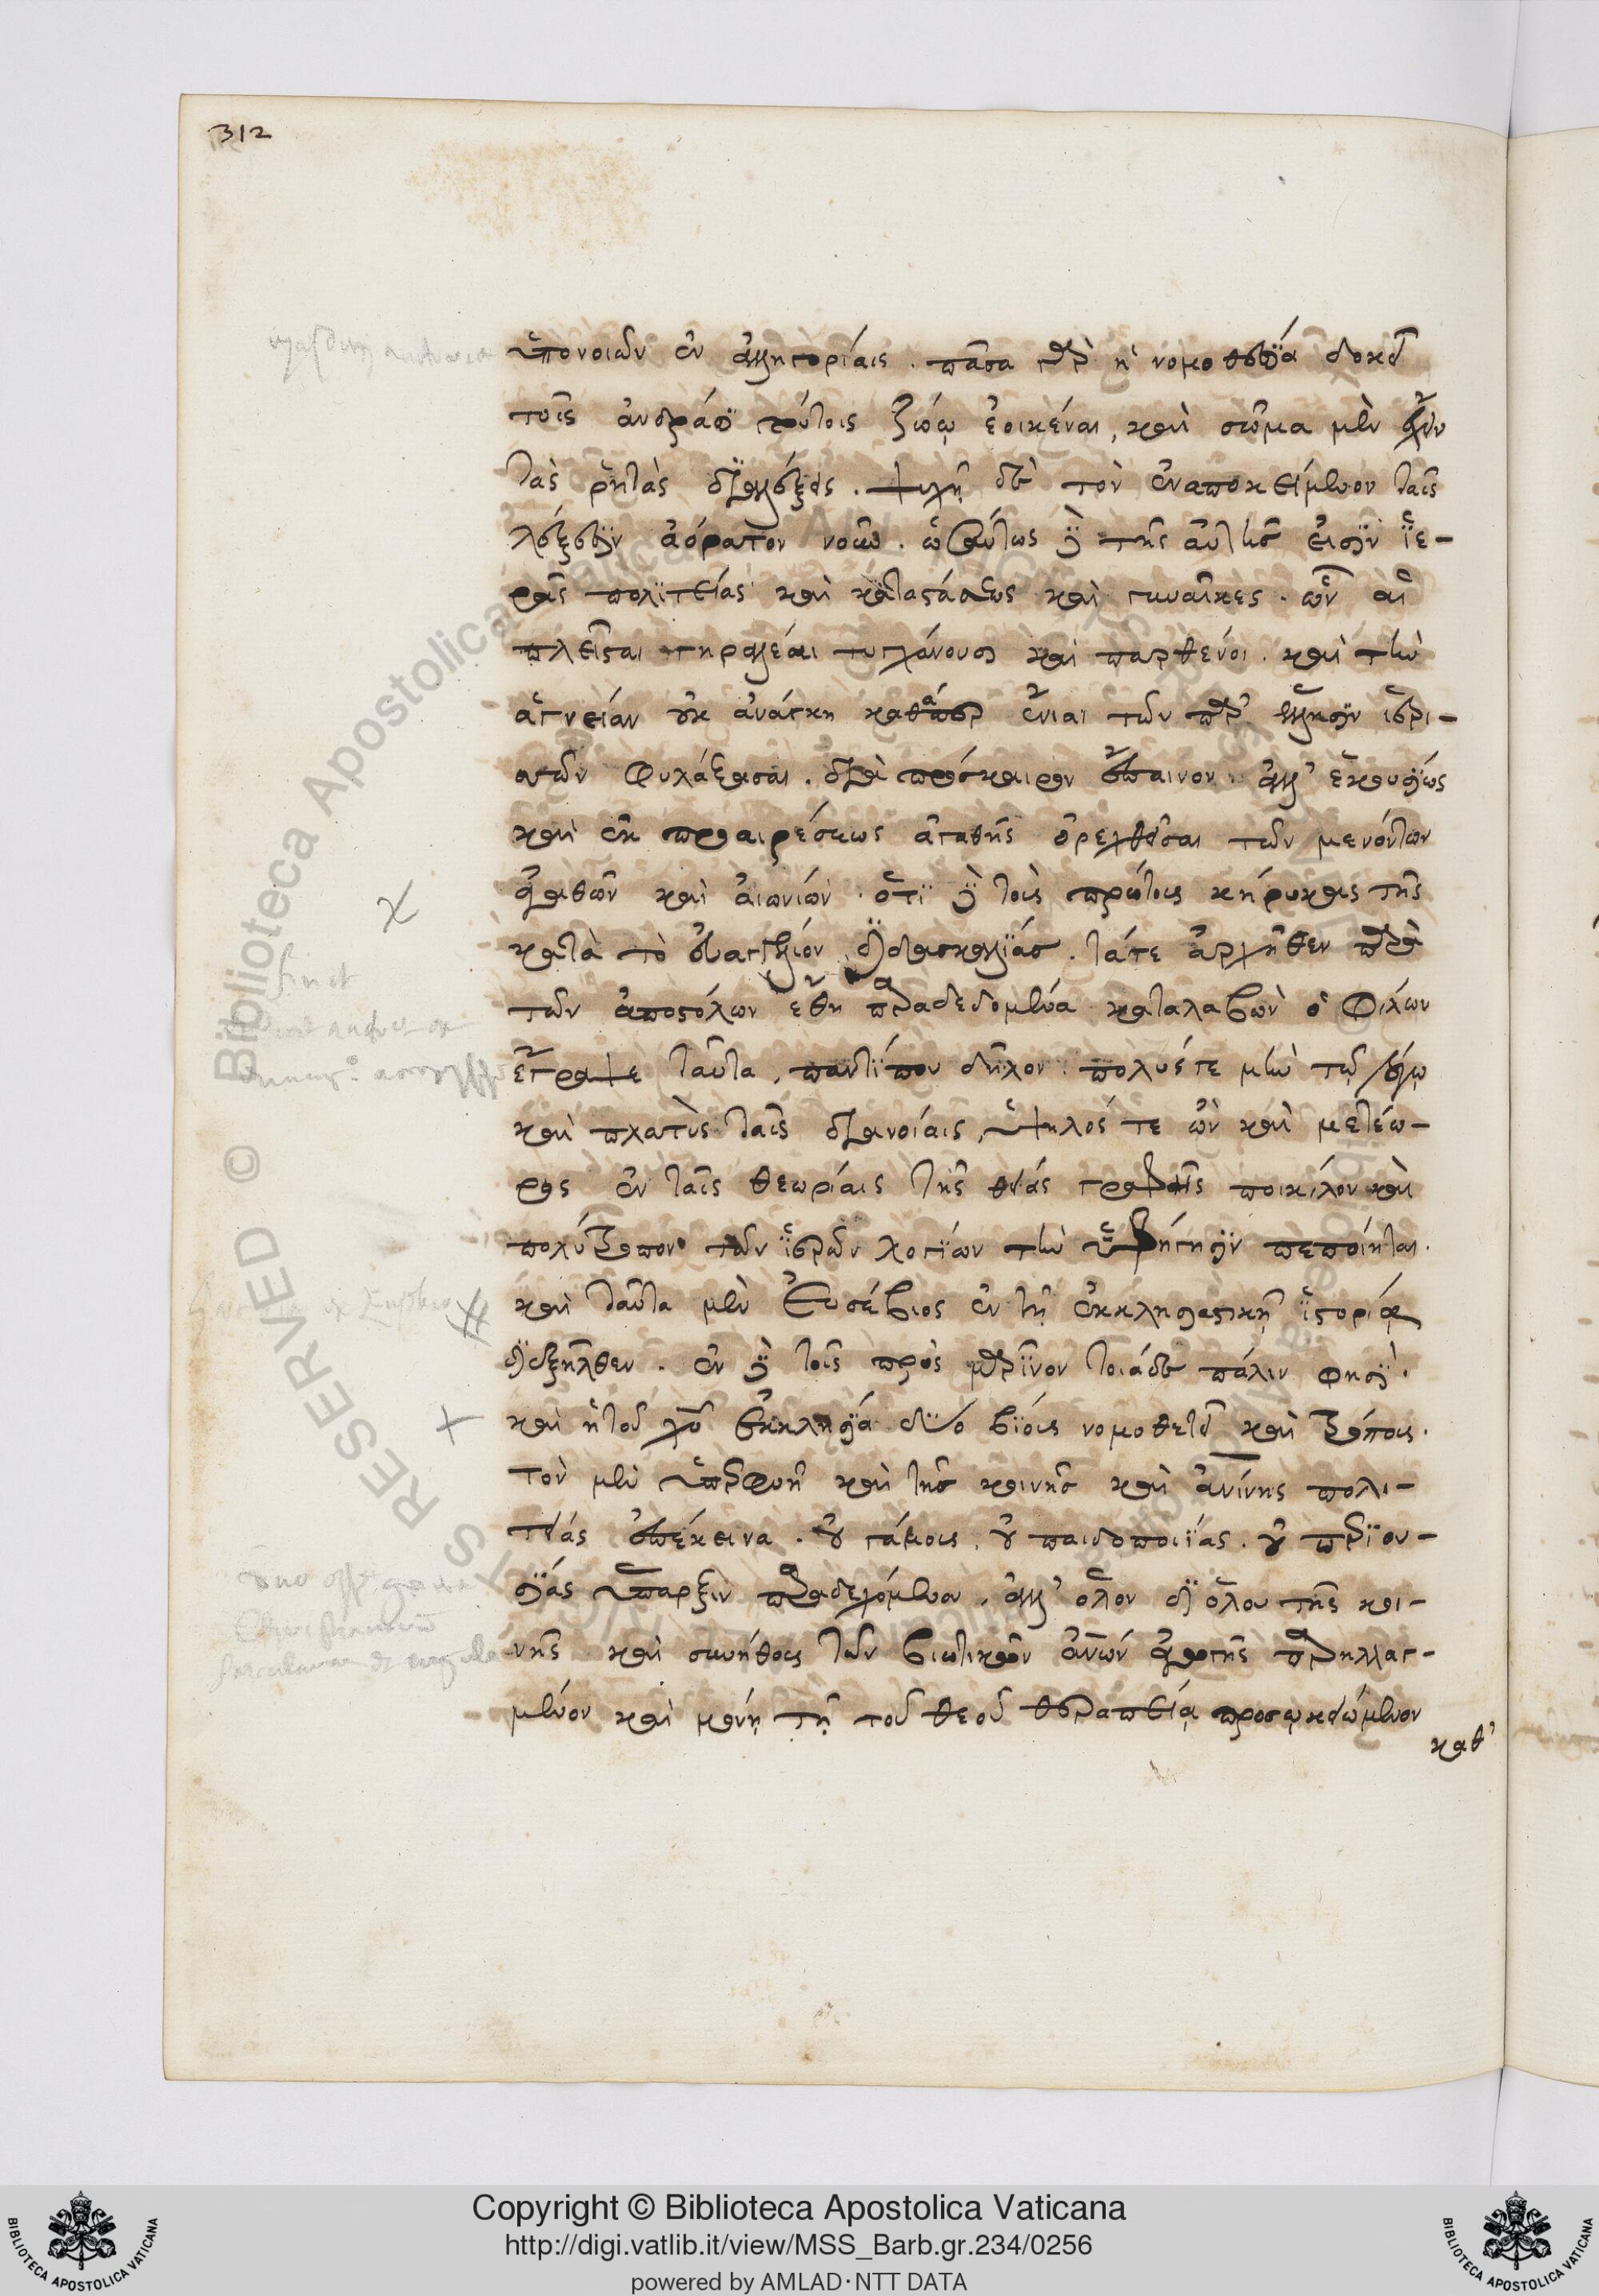 312
ὑπονοιῶν ἐν ἀλληγορίαις. πᾶσα γὰρ ἡ νομοθεσία δοκεῖ
τοῖς ἀνδράσι τούτοις ζώῳ ἐοικέναι, καὶ σῶμα μὲν ἔχειν
τὰς ῥητὰς διατάξεις. ψυχὴν δὲ τὸν ἐναποκείμενον ταῖς
λέξεσιν ἀόρατον νοῦν. ὡσαύτως δὲ τῆς αὐτῆς εἰσὶν ἱε-
ρᾶς πολιτείας καὶ καταστάσεως καὶ γυναῖκες. ὧν αἱ
πλεῖσται γηραλέαι τυγχάνουσι καὶ παρθένοι. καὶ τὴν
ἁγνείαν οὐκ ἀνάγκη καθάπερ ἔνιαι τῶν παρ' ἕλλησιν ἱερι-
ῶν φυλάξασαι. διὰ πρόσκαιρον ἔπαινον. ἀλλ' ἑκουσίως
καὶ ἐκ προαιρέσεως ἀγαθῆς ὀρεχθεῖσαι τῶν μενόντων
ἀγαθῶν καὶ αἰωνίων. ὅτι δὲ τοῖς πρώτοις κήρυκας τῆς
κατὰ τὸ εὐαγγέλιον διδασκαλίας. τά τε ἀρχῆθεν παρὰ
τῶν ἀποστόλων ἔθη παραδεδομένα καταλαβὼν ὁ Φίλων
ἔγραψε ταῦτα, παντί που δῆλον. πολύς τε μὴν τῷ λόγῳ
καὶ πλατὺς ταῖς διανοίαις, ὑψηλός τε ὢν καὶ μετέω-
ρος ἐν ταῖς θεωρίαις τῆς θείας γραφῆς ποικίλον καὶ
πολύτροπον τῶν ἱερῶν λογίων τὴν ὑφήγησιν πεποίηται.
καὶ ταῦτα μὲν Εὐσέβιος ἐν τῇ ἐκκλησιαστικῇ ἱστορίᾳ
διεξῆλθεν. ἐν δὲ τοῖς πρὸς μαρῖνον τοιάδε πάλιν φησί.
καὶ ἡ τοῦ χυ ἐκκλησία δύο βίοις νομοθετεῖ καὶ τρόποις.
τὸν μὲν ὑπερφυῆ καὶ τῆς κοινῆς καὶ ἀνίνης πολι-
τείας ἐπέκεινα. οὐ γάμοις. οὐ παιδοποιΐας. οὐ περιου-
σίας ὕπαρξιν παραδεχόμενον. ἀλλ' ὅλον δι' ὅλου τῆς κοι-
νῆς καὶ συνήθους τῶν βιωτικῶν ἀνων ἀγωγῆς παρηλλαγ-
μένον καὶ μόνῃ τῇ τοῦ θεοῦ θεραπείᾳ προσῳκειωμένον
καθ'
Copyright © Biblioteca Apostolica Vaticana
http://digi.vatlib.it/view/MSS_Barb.gr.234/0256
powered by AMLAD·NTT DATA
BIBLIOTECA APOSTOLICA VATICANA
BIBLIOTECA APOSTOLICA VATICANA